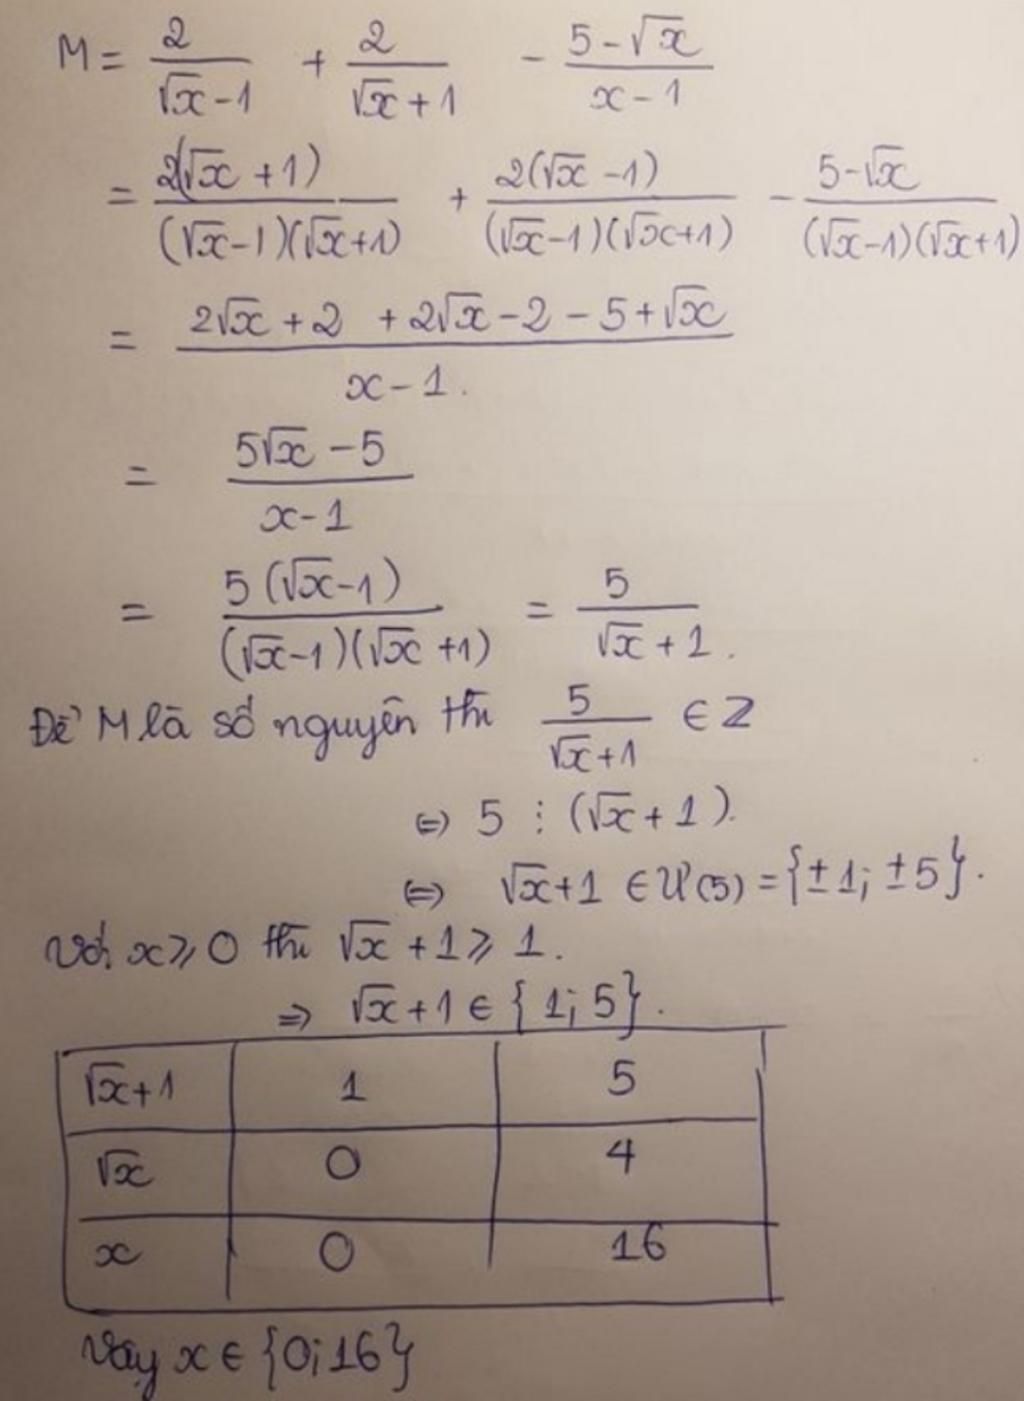 M = \frac{2}{\sqrt{x}-1} + \frac{2}{\sqrt{x}+1} - \frac{5-\sqrt{x}}{x-1}
= \frac{2(\sqrt{x}+1)}{(\sqrt{x}-1)(\sqrt{x}+1)} + \frac{2(\sqrt{x}-1)}{(\sqrt{x}-1)(\sqrt{x}+1)} - \frac{5-\sqrt{x}}{(\sqrt{x}-1)(\sqrt{x}+1)}
= \frac{2\sqrt{x}+2+2\sqrt{x}-2-5+\sqrt{x}}{x-1}.
= \frac{5\sqrt{x}-5}{x-1}
= \frac{5(\sqrt{x}-1)}{(\sqrt{x}-1)(\sqrt{x}+1)} = \frac{5}{\sqrt{x}+1}.
Để M là số nguyên thì \frac{5}{\sqrt{x}+1} ∈ Z
⇔ 5 ⋮ (√x + 1).
⇔ √x+1 ∈ Ư(5) = {±1; ±5}.
Với x ⩾ 0 thì √x + 1 ⩾ 1.
⇒ √x+1 ∈ {1; 5}.
√x+1 1 5
√x 0 4
x 0 16
Vậy x ∈ {0; 16}